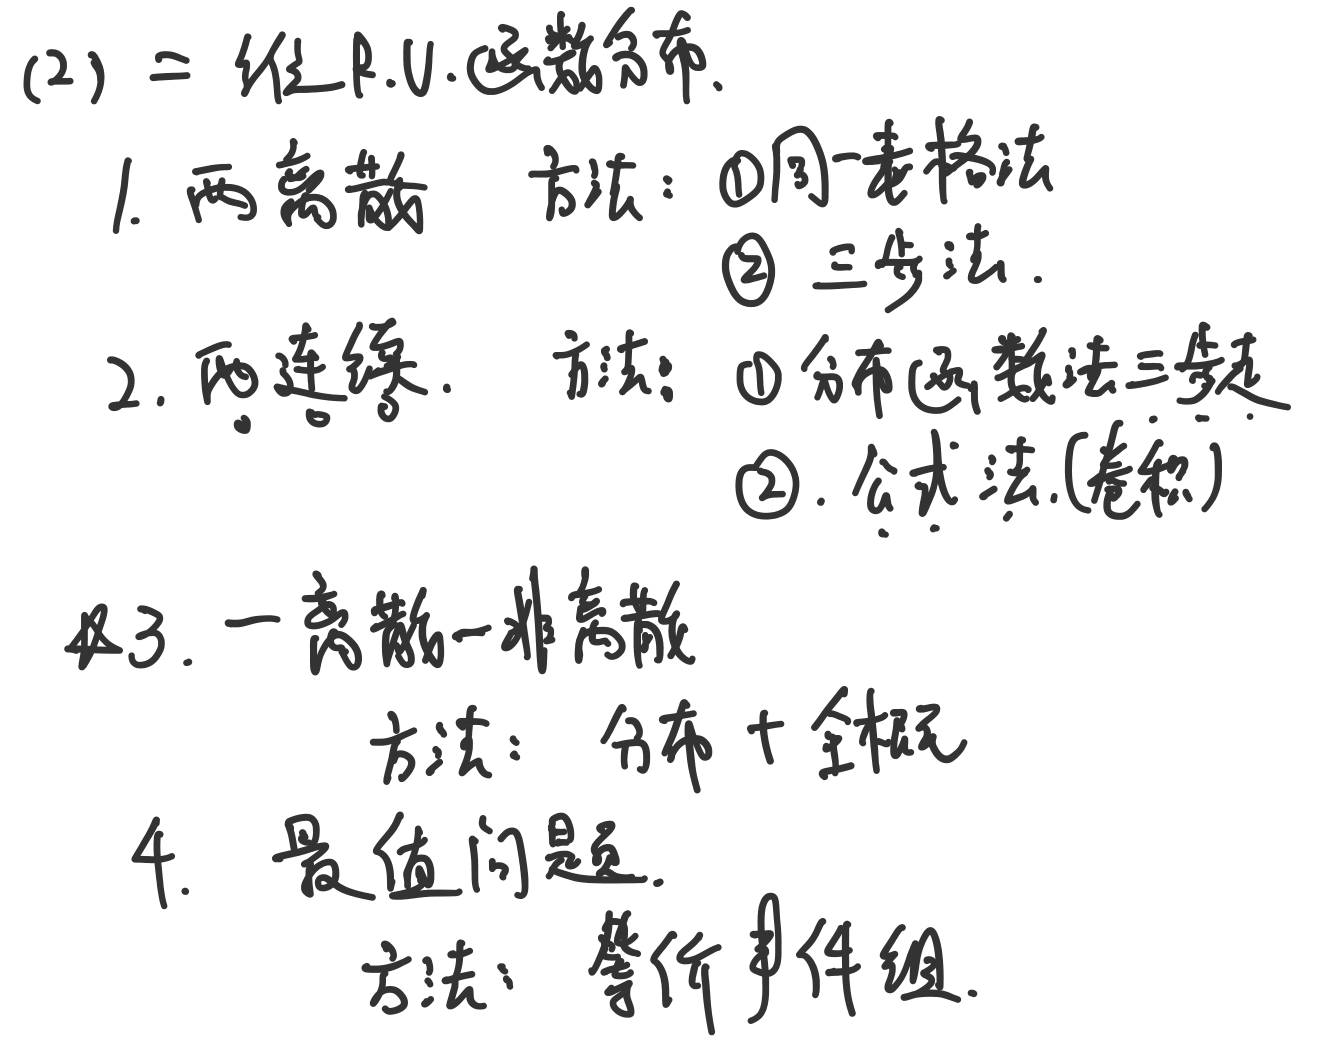 (2) 二维R.V.函数分布.
1. 两离散 方法: ①同一表格法
② 三步法.
2. 两连续. 方法: ①分布函数法三步走
②. 公式法.(卷积)
☆3. 一离散一非离散
方法: 分布+全概
4. 最值问题.
方法: 等价事件组.